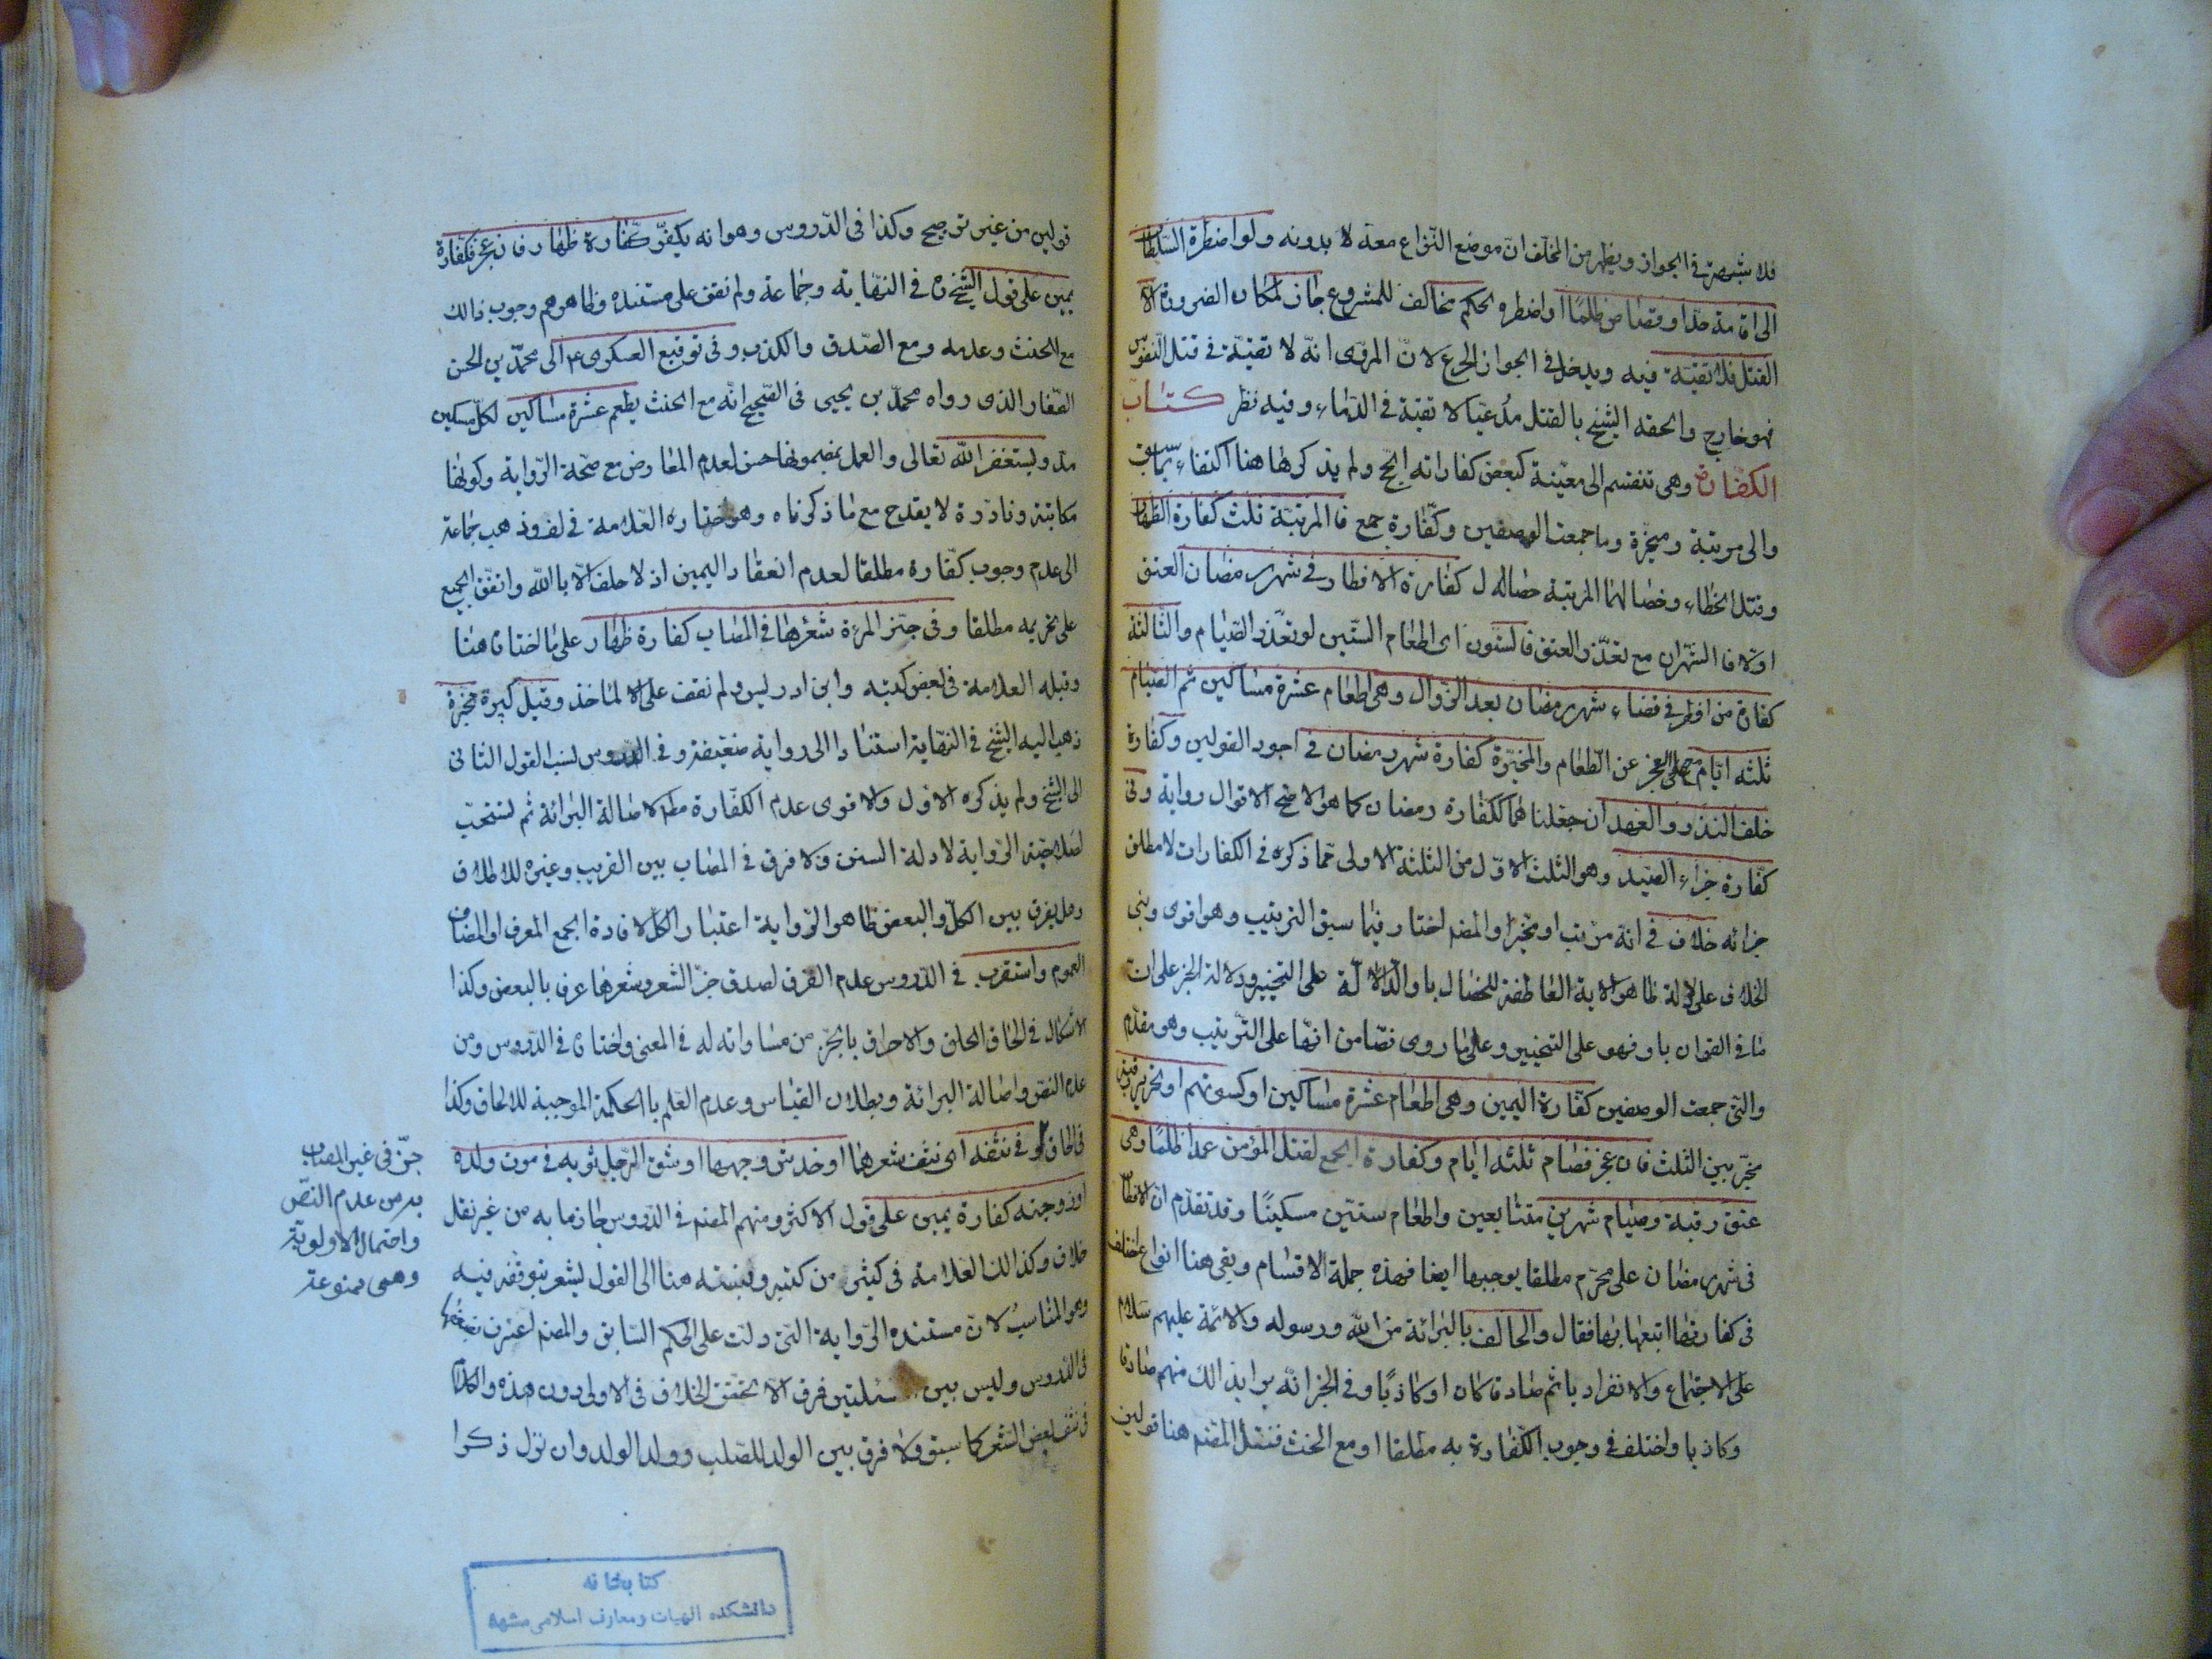 فلا شبهة في الجواز ويظهر من المخلف ان موضع النزاع معه لا بدونه ولو اضطره السلطان
الى اقامة حد او قصاص ظلما او اضطره الحكم مخالف للمشروع جاز لمكان الضرورة الا
القتل فلا تقية فيه ويدخل في الجواز الجرح لان المروى انه لا تقية في قتل النفوس
فهو خارج والحقه الشيخ بالقتل مدعيا لا تقية في الدماء وفيه نظر كتاب
الكفارة وهى تنقسم الى معينة كبعض كفاراته الحج ولم يذكرها هنا اكتفاء بما سبق
والى مرتبة ومخيرة وما جمعت الوصفين وكفارة جمع فالمرتبة ثلث كفارة الظهار
وقتل الخطاء وخصالهما المرتبة خصال كفارة الافطار في شهر رمضان العتق
اولا فالشهران مع تعذر العتق فالستون اى اطعام الستين لو تعذر الصيام والثالثة
كفارة من افطر في قضاء شهر رمضان بعد الزوال وهى اطعام عشرة مساكين ثم الصيام
ثلثة ايام مع العجز عن الطعام والمخيرة كفارة شهر رمضان في اجود القولين وكفارة
خلف النذر والعهد ان جعلناهما ككفارة رمضان كما هو الاصح الاقوال رواية وفى
كفارة جزاء الصيد وهو الثلث الاول من الثلثة الاولى مما ذكره في الكفارات لا مطلق
جزائه خلاف في انه مرتب او مخير والمصنف اختار فيما سبق الترتيب وهو اقوى وبنى
الخلاف على دلالة ظاهر الاية العاطفة للخصال باو الدالالة على التخيير ودلالة الخبر على ان
ما في القران باو فهو على التخيير وعلى ما روى نصا من انها على الترتيب وهو مقدم
والتى جمعت الوصفين كفارة اليمين وهى اطعام عشرة مساكين او كسوتهم او تحرير رقبة
مخير بين الثلث فان عجز فصيام ثلثة ايام وكفارة الجمع لقتل المؤمن عمدا ظلما وهى
عتق رقبة وصيام شهرين متتابعين واطعام ستين مسكينا وقد تقدم ان الافطار
في شهر رمضان على محرم مطلقا يوجبها ايضا فهذه جملة الاقسام وبقى هنا انواع اختلف
فى كفارتها اتبعها بها فقال والحالف بالبرائة من الله ورسوله والائمة عليهم سلام
على الاجتماع والانفراد ياثم صادقا كان او كاذبا وفى الخبر انه يبرا بذالك منهم صادقا
وكاذبا واختلف في وجوب الكفارة به مطلقا او مع الحنث فنقل المصنف هنا قولين
قولين من غير ترجيح وكذا فى الدروس وهو انه يكفر كفارة ظهار فان عجز فكفارة
يمين على قول الشيخ في النهاية وجماعة ولم نقف على مستنده وظاهرهم وجوب ذالك
مع الحنث وعدمه ومع الصدق والكذب وفى توقيع العسكرى ع الى محمد بن الحسن
الصفار الذى رواه محمد بن يحيى فى الصحيح انه مع الحنث يطعم عشرة مساكين لكل مسكين
مد ويستغفر الله تعالى والعمل بمضمونها حسن لعدم المعارض مع صحة الرواية وكونها
مكاتبة ونادرة لا يقدح مع ما ذكرناه وهو اختاره العلامة في لف وذهب جماعة
الى عدم وجوب كفارة مطلقا لعدم انعقاد اليمين اذ لا حلف الا بالله واتفق الجميع
على تحريمه مطلقا وفى جز المرءة شعرها في المصاب كفارة ظهار على ما اختاره هنا
وقبله العلامة فى بعض كتبه وابن ادريس ولم نقف على الماخذ وقيل كبيرة مخيرة
ذهب اليه الشيخ في النهاية استنادا الى رواية ضعيفة وفى الدروس نسب القول الثانى
الى الشيخ ولم يذكره الاول والاقوى عدم الكفارة مطلقا لاصالة البرائة ثم تستحب
لصلاحية الرواية لادلة السنن ولا فرق في المصاب بين القريب وغيره للاطلاق
وهل يفرق بين الكل والبعض ظاهر الرواية اعتبار الكل لافادة الجمع المعرف او المضاف
العموم واستقرب في الدروس عدم الفرق لصدق جز الشعر وشعرها عرفا بالبعض وكذا
الاشكال في الحاق الحلق والاحراق بالجز من مساواته له في المعنى واختاره في الدروس ومن
عدم النص واصالة البرائة وبطلان القياس وعدم العلم بالحكمة الموجبة للالحاق وكذا
فى الحاق وفى نتفه اى نتف شعرها او خدش وجهها او شق الرجل ثوبه في موت ولده
او زوجته كفارة يمين على قول الاكثر ومنهم المصنف في الدروس جازما به من غير نقل
خلاف وكذالك العلامة فى كثير من كتبه ونسبته هنا الى القول يشعر بتوقفه فيه
وهو المناسب لان مستنده الرواية التى دلت على الحكم السابق والمصنف اعترف بضعفها
فى الدروس وليس بين المسئلتين فرق الا بتحقق الخلاف فى الاولى دون هذه والكلام
فى نتف بعض الشعر كما سبق ولا فرق بين الولد للصلب وولد الولد وان نزل ذكرا
جز فى غير المصاب
من عدم النص
واحتمال الاولوية
وهى ممنوعة
كتابخانه
دانشكده الهيات ومعارف اسلامى مشهد